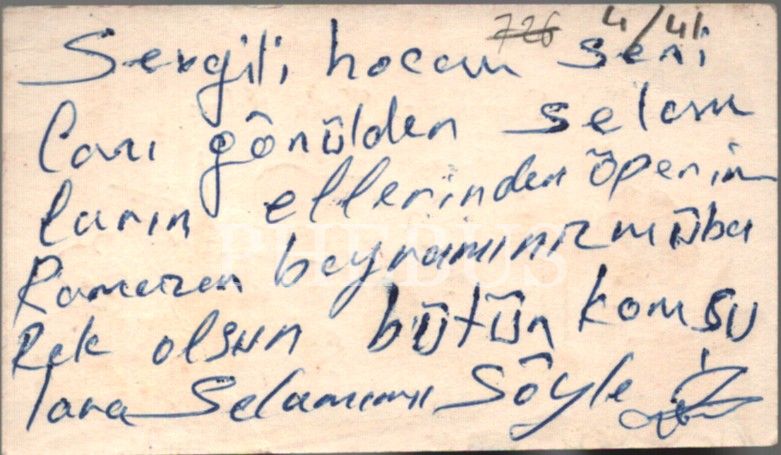 726 4/41
Sevgili hocam seni
Canı gönülden selam
larım ellerinden öperim
Ramazan bayramınız müba
Rek olsun bütün komsu
lara Selamımı Söyle
PHEBUS